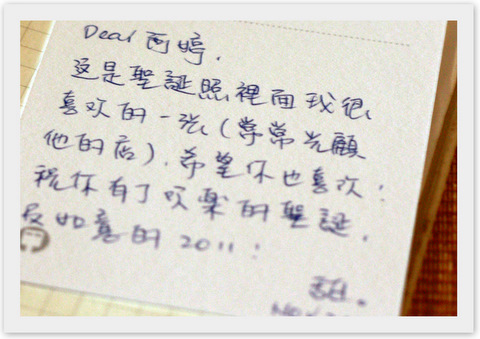 Dear 雨婷,
這是聖誕照裡面我很
喜欢的一张(常常光顧
他的店).希望你也喜欢!
祝你有个快樂的聖誕,
及如意的2011!